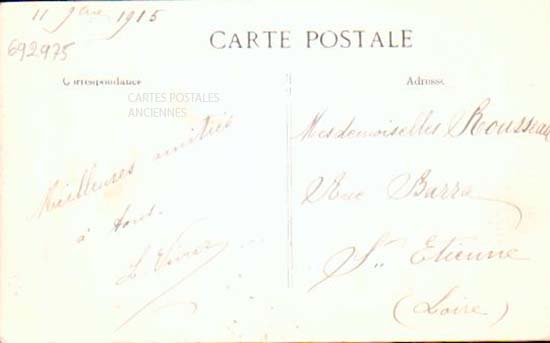 11 1915
692975
CARTE POSTALE
Correspondance
Adresse
CARTES POSTALES
ANCIENNES
Meilleures amitiés
à tous.
Mesdemoiselles Rousseau
Rue Barra
St Etienne
(Loire)